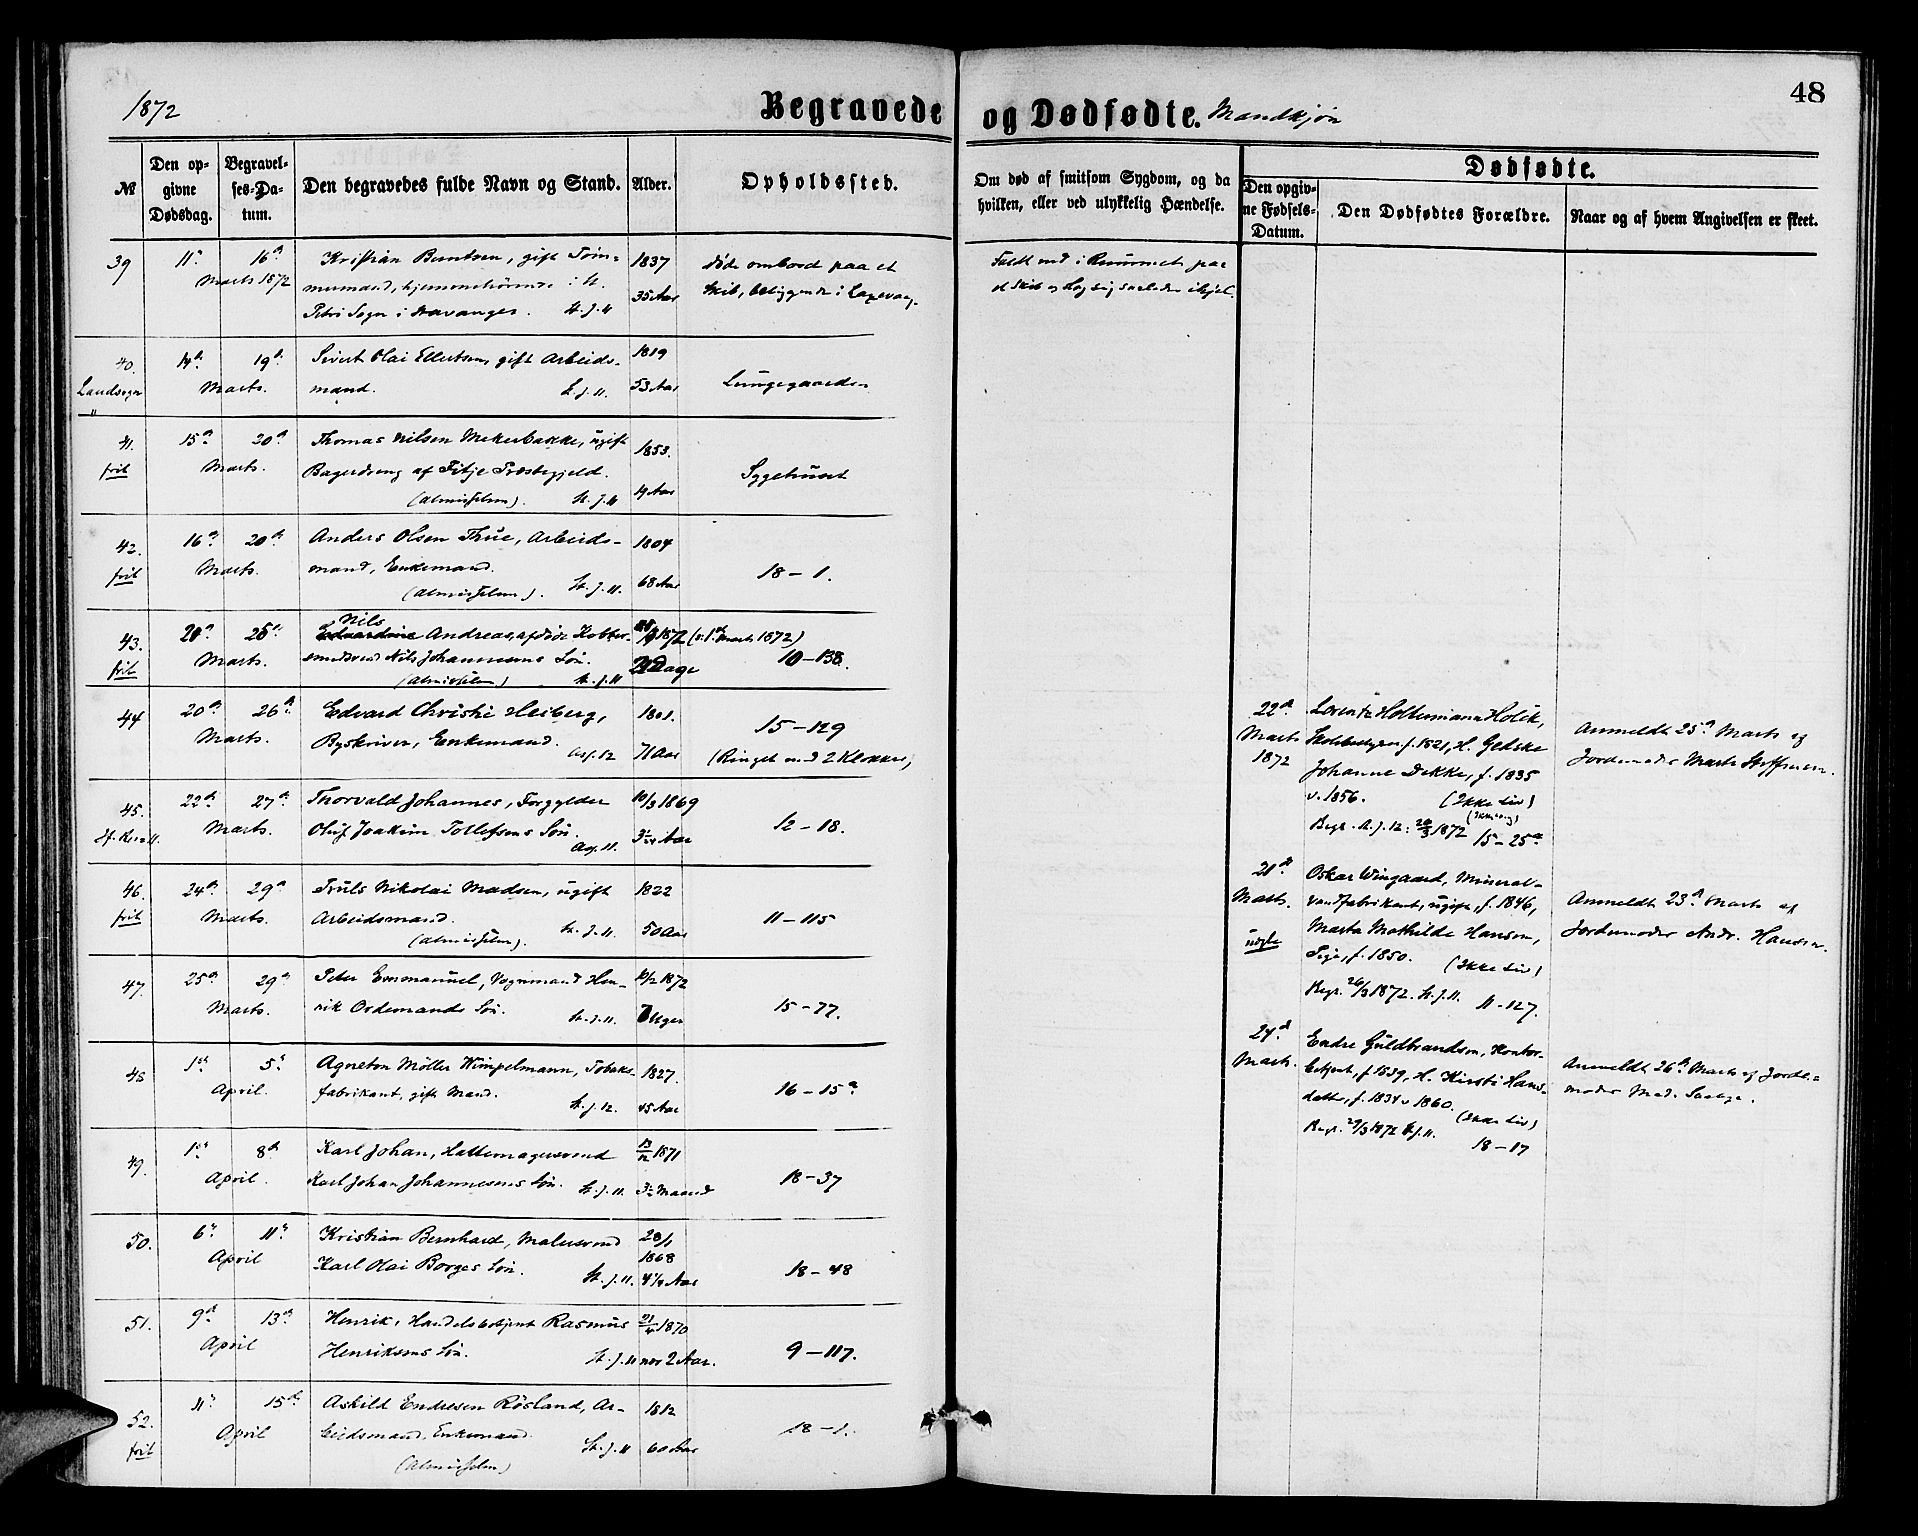 1872
Begravede og Dødfødte. Mandkjøn
48
№
Den opgivne Dødsdag.
Begravelses-Datum.
Den begravedes fulde Navn og Stand.
Alder.
Opholdssted.
Om død af smitsom Sygdom, og da hvilken, eller ved ulykkelig Hændelse.
Dødfødte.
Den opgivne Fødsels-Datum.
Den Dødfødtes Forældre.
Naar og af hvem Angivelsen er skeet.
39 11te 16de Kristian Berntsen, gift Tøm= 1837 døde ombord paa et
Marts 1872 mermand, hjemmehørende i St. 35 Aar Skib, beliggende i Laxevaag.
Petri Sogn i Stavanger. St. J. 11
Faldt ned i Rummet paa
et Skib og slog sig saaledes ihjel.
40. 14de 19de Sivert Olai Ellertsen, gift Arbeids- 1819
Landsogn Marts. mand. St. J. 11. 53 Aar Lungegaarden
41. 15de 20de Thomas Nilsen Mekerbakke, ugift 1853.
frit Marts. Bagerdreng af Fitje Præstegjeld. Sygehuset
(Almisselem) St. J. 11 19 Aar
42. 16de 20de Anders Olsen Thue, Arbeids- 1804
frit Marts. mand, Enkemand. 18 – 1.
(Almisselem). St. J. 11. 68 Aar
Nils
43. 20de 25de Andreas, afdøde Kobber- 1872 (v. 1ste Marts 1872)
frit Marts. smedsvend Nils Johannesens Søn. Dage 10 – 138.
(Almisselem) St. J. 11
44 20de 26de Edvard Christie Heiberg, 1801. 15 – 129
Marts. Byskriver, Enkemand. Asf. 12 71 Aar (Ringet med 2 Klokker)
45. 22de 27de Thorvald Johannes, Forgylder 10/3 1869
Marts. Oluf Joakim Tollefsens Søn. 3 Aar 12 – 18.
Asf. 11.
46. 24de 29de Truls Nikolai Madsen, ugift 1822
frit Marts. Arbeidsmand. St. J. 11. 50 Aar 11 – 115
(Almisselem).
47. 25de 29de Peter Emmanuel, Vognmand Hen- 1872
Marts. rik Ordemands Søn. St. J. 11. 7 Uger 15 – 77.
48 1ste 5te Agneton Møller Wimpelmann, Tobaks- 1827.
April. fabrikant, gift Mand. St. J. 12. 45 Aar 16 – 15a
49. 1ste 8de Karl Johan, Hattemagersvend 13/12 1871
April. Karl Johan Johannesens Søn. St. J. 11. 3½ Maaned 18 – 37
50. 6te 11te Kristian Bernhard, Malersvend 28/1
April Karl Olai Borges Søn. 1868
St. J. 11. 4¼ Aar 18 – 48
51. 9de 13de Henrik, Handelsbetjent Rasmus 21/4 1870
April Henriksens Søn. St. J. 11 nær 2 Aar. 9 – 117.
52. 11te 15de Askild Endresen Røsland, Ar- 1812
frit April beidsmand, Enkemand. St. J. 11 60 Aar 18 – 1.
(Almisselem)
22de Lorentz Holtermann Holck,
Marts Skolebestyrer f. 1821, H. Gedske
1872 Johanne Dekke, f. 1835
v. 1856. (Ikke Liv)
Begr. A. J. 12: 26/3 1872 15 – 25a
Anmeldt 25de Marts af
Jordemoder Marta Steffensen.
21de Oskar Wingaard, Mineral-
Marts. vandfabrikant, ugift, f. 1846,
uægte Marta Mathilde Hansen,
Pige, f. 1850. (Ikke Liv)
Begr. 26/3 1872. St. J. 11. 11 – 127.
Anmeldt 23de Marts af
Jordemoder Andr. Hansen.
24de Endre Guldbrandsen, Kontor-
Marts. betjent, f. 1839, H. Kirsti Hans-
datter, f. 1834 v 1860.
(Ikke Liv)
Begr. 29/3 1872 St. J. 11. 18 – 17
Anmeldt 26de Marts af Jorde=
moder Mad.